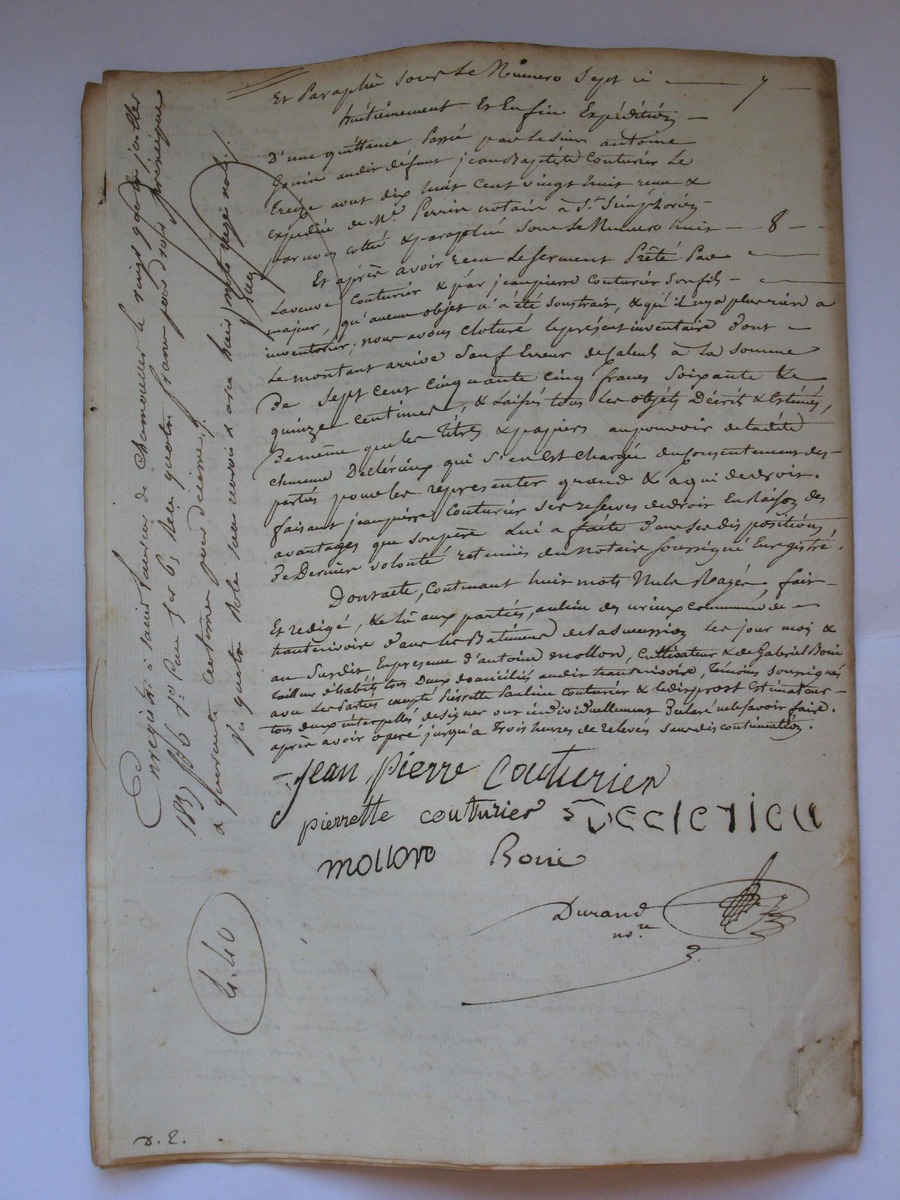 Et Paraphé sous Le Numero Sept ci — 7
huitiemement Et Enfin Expédition —
D'une quittance Passé par Le Sieur antoine
Gouin audit défunt jean Baptiste Couturier Le
treize aout dix huit cent vingt huit recue &
expediée de Mr. Perrin notaire à St. Simphorien
par nous cotté & paraphé sous Le Numero huit — 8 —
Et après avoir recu Le serment Prêté Par
La veuve Couturier & par jean pierre Couturier son fils —
majeur, qu'aucun objet n'a été soustrait, & qu'il n'y a plus rien a
inventorier; nous avons cloturé le présent inventaire dont —
Le montant arrive Sauf Erreur de Calcul à La Somme
De Sept Cent Cinquante Cinq francs Soixante &
quinze Centimes, & Laissés tous les objets Décrits & Estimés,
De même que les Titres & papiers au pouvoir de ladite
Declérieux qui S'en Est Chargée du Consentement des
parties pour les représenter quand & a qui de droit.
faisant jean pierre Couturier Ses reserves de droit En Raison des
avantages que Son père Lui a faite dans Ses dispositions
de Derniere volonté retenues du Notaire Soussigné Enregistré.
Dont acte, Contenant huit mots Nuls Rayés, fait —
Et redigé, & lû aux parties, au lieu des Commune de —
hauterivoire dans les Batiments de La Succession Les jour mois &
an Susdit En presence d'antoine mollon, Cultivateur & de Gabriel Borie
tailleur d'habits tous Deux domiciliés audit hauterivoire, Témoins Soussignés
avec Les Parties excepté Pierrette Pauline Couturier & Estimateur —
tous deux interpellés de Signer ont individuellement Déclaré ne le Savoir faire.
après avoir opéré jusqu'a Trois heures de relevée Sans discontinuation.
jean pierre Couturier
pierrette couturier Declerieu
mollon Borie
Durand
nore.
Enregistré à Saint Laurent de Chamousset le vingt juillet
1837 fo 6 Ro Cases 6 reçu quatre francs pour droits
& quarante centimes pour décime.
4.40
D. E.